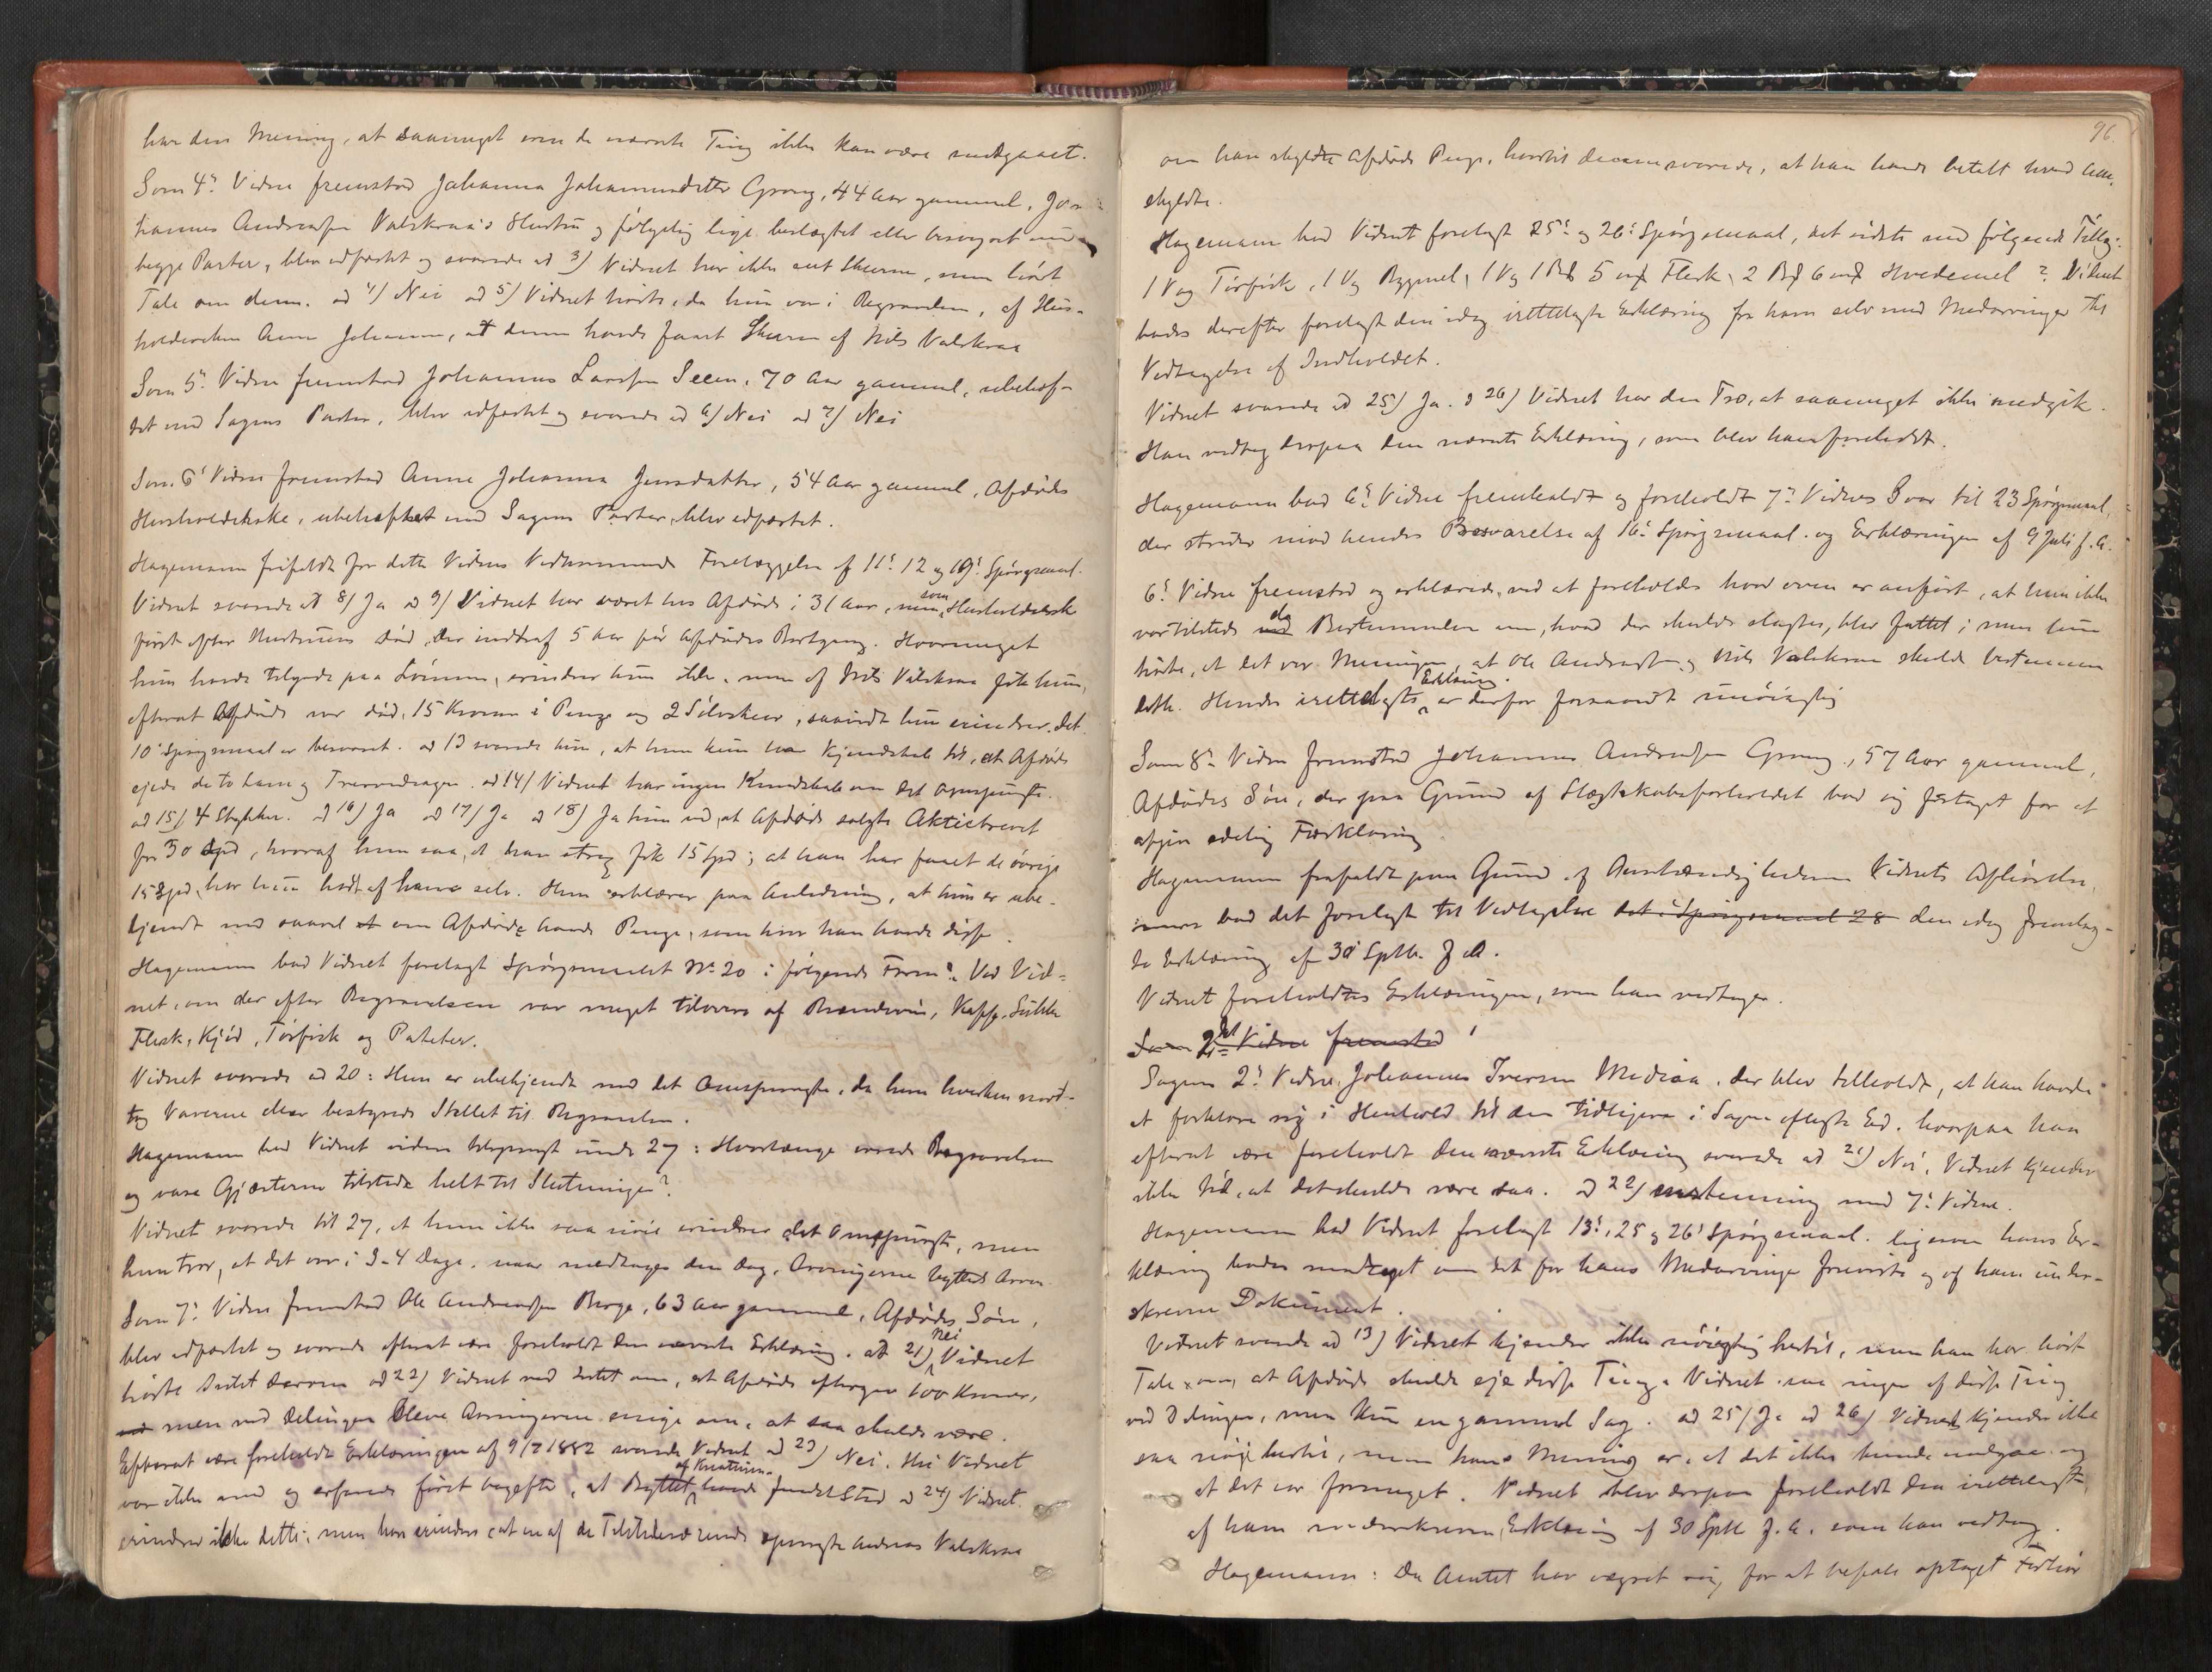 har den Mening, at saameget som de nævnte Ting ikke kan være medgaaet.
Som 4de Vidne fremstod Johanna Johannesdatter Grong, 44 Aar gammel, Jo-
hannes Andreasen Valskraa's Hustru og følgelig lige beslægtet eller besvogret med
begge Parter, blev edfæstet og svarede ad 3) Vidnet har ikke seet Skeerne, men hørt
Tale om dem. ad 4) Nei ad 5) Vidnet hørte, da hun var i Begravelsen, af Hus-
holdersken Anne Johanna, at denne havde faaet Skeerne af Nils Valskraa
Som 5te Vidne fremstod Johannes Larsen Seem, 70 Aar gammel, ubehæf-
tet med Sagens Parter, blev edfæstet og svarede ad 6) Nei ad 7) Nei
Som 6te Vidne fremstod Anne Johanna Jensdatter, 54 Aar gammel, Afdødes
Husholderske, ubehæftet med Sagens Parter, blev edfæstet.
Hagemann frafaldt for dette Vidnes Vedkommende Forelæggelse af 11te 12 og 19de Spørgsmaal.
Vidnet svarede ad 8) Ja ad 9) Vidnet har været hos Afdøde i 31 Aar, men som Husholderske
først efter Hustruens Død, der indtraf 5 Aar før Afdødes Bortgang. Hvormeget
hun havde tilgode paa Lønnen, erindrer hun ikke, men af Nils Valskraa fik hun,
efterat Afdøde var død, 15 Kroner i Penge og 2 Sølvskeer, saavidt hun erindrer. Det
10de Spørgsmaal er besvaret. ad 13 svarede hun, at hun kun har Kjendskab til, at Afdøde
ejede de to Lam og Trævendragen. ad 14) Vidnet har ingen Kundskab om det Omspurgte.
ad 15) 4 Stykker. ad 16) Ja ad 17) Ja ad 18) Ja hun ved, at Afdøde solgte Aktiebrevet
for 30 Spd, hvoraf hun saa, at han strax fik 15 Spd; at han har faaet de øvrige
15 Spd, har hun hørt af ham selv. Hun erklærer paa Anledning, at hun er ube-
kjendt med saavel at om Afdøde havde Penge, som hvor han havde disse.
Hagemann bad Vidnet forelagt Spørgsmaalet No 20 i følgende Form: Ved Vid-
net, om der efter Begravelsen var meget tilovers af Brændevin, Kaffe, Sukker
Flesk, Kjød, Tørfisk og Poteter.
Vidnet svarede ad 20: Hun er ubekjendt med det Omspurgte, da hun hverken mod-
tog Varerne eller bestyrede Stellet til Begravelsen.
Hagemann bad Vidnet videre tilspurgt under 27: Hvorlænge varede Begravelsen
og vare Gjæsterne tilstede helt til Slutningen?
Vidnet svarede til 27, at hun ikke saa nøie erindrer det Omspurgte, men
hun tror, at det var i 3-4 Dage, naar medtages den Dag, Arvingerne byttede Arven.
Som 7de Vidne fremstod Ole Andreassen Berge, 63 Aar gammel, Afdødes Søn,
blev edfæstet og svarede efterat være foreholdt den nævnte Erklæring. ad 21) Nei Vidnet
hørte Intet derom ad 22) Vidnet ved Intet om, at Afdøde efterlod 600 Kroner,
men ved Delingen bleve Arvingerne enige om, at saa skulde være.
Efterat være foreholdt Erklæringen af 9/7 1882 svarede Vidnet ad 23) Nei. Thi Vidnet
var ikke med og erfarede først bagefter, at Byttet af Kreaturene havde fundet Sted ad 24) Vidnet
erindrer ikke dette, men han erindrer at en af de Tilstedeværende spurgte Andreas Valskraa
96
om han skyldte Afdøde Penge, hvortil denne svarede, at han havde betalt hvad han
skyldte.
Hagemann bad Vidnet forelagt 25de og 26de Spørgsmaal, det sidste med følgende Tillæg:
1 Vog Tørfisk, 1 Vog Bygmel, 1 Vog 1 Bpd 5 mk Flesk, 2 Bpd 6 mk Hvedemel? Vidnet
bades derefter forelagt den idag irettelagte Erklæring fra ham selv med Medarvinger til
Vedtagelse af Indholdet.
Vidnet svarede ad 25) Ja. ad 26) Vidnet har den Tro, at saameget ikke medgik.
Han vedtog derpaa den nævnte Erklæring, som blev ham foreholdt.
Hagemann bad 6te Vidne fremkaldt og foreholdt 7de Vidnes Svar til 23 Spørgsmaal,
der strider mod hendes Besvarelse af 16de Spørgsmaal og Erklæringen af 9 Juli f. A.
6te Vidne fremstod og erklærede, ved at foreholdes hvad oven er anført, at hun ikke
var tilstede da Bestemmelsen om, hvad der skulde slagtes, blev fattet; men hun
hørte, at det var Meningen, at Ole Andreassen og Nils Valskraa skulde bestemme
dette. Hendes irettelagte Erklæring er derfor forsaavidt unøiagtig
Som 8de Vidne fremstod Johannes Andreassen Grong, 57 Aar gammel,
Afdødes Søn, der paa Grund af Slægtskabsforholdet bad sig fritaget for at
afgive edelig Forklaring
Hagemann frafaldt paa Grund af Omstændighederne Vidnets Afhørelse,
men bad det forelagt til Vedtagelse det i Spørgsmaal 28 den idag fremlag-
te Erklæring af 30 Septbr f A.
Vidnet foreholdtes Erklæringen, som han vedtager.
Som 2det Vidne fremstod
Sagens 2det Vidne, Johannes Iversen Mediaa, der blev tilholdt, at han havde
at forklare sig i Henhold til den tidligere i Sagen aflagte Ed, hvorpaa han
efterat være foreholdt den nævnte Erklæring svarede ad 21) Nei, Vidnet kjender
ikke til, at det skulde være saa. ad 22) enstemmig med 7de Vidne.
Hagemann bad Vidnet forelagt 13de, 25 og 26de Spørgsmaal, ligesom hans Er-
klæring bades modtaget om det for hans Medarvinger foreviste og af ham under-
skrevne Dokument.
Vidnet svarede ad 13) Vidnet kjender ikke nøiagtig hertil, men han har hørt
Tale om, at Afdøde skulde eje disse Ting. Vidnet saa ingen af disse Ting
ved Delingen, men kun en gammel Sag. ad 25) Ja ad 26) Vidnet kjender ikke
saa nøje hertil, men hans Mening er, at det ikke kunde medgaa og
at det var formeget. Vidnet blev derpaa foreholdt den irettelagte,
af ham underskrevne Erklæring af 30 Septbr f. A. som han vedtog.
Hagemann: Da Amtet har vægret sig for at befale optaget Forhør